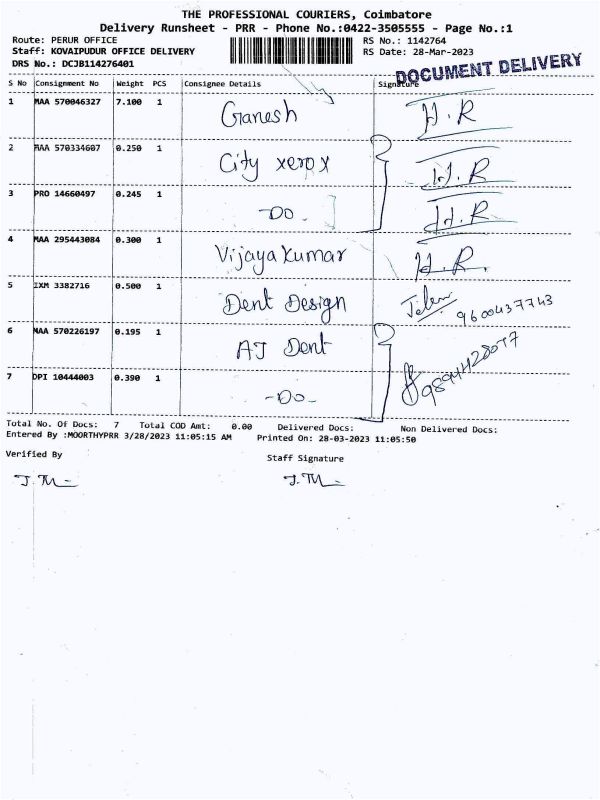 THE PROFESSIONAL COURIERS, Coimbatore
Delivery Runsheet - PRR - Phone No.:0422-3505555 - Page No.:1
Route: PERUR OFFICE RS No.: 1142764
Staff: KOVAIPUDUR OFFICE DELIVERY RS Date: 28-Mar-2023
DRS No.: DCJB114276401 DOCUMENT DELIVERY
S No Consignment No Weight PCS Consignee Details Signature
1 MAA 570046327 7.100 1 Ganesh H.R
2 MAA 570334607 0.250 1 City xerox H.R
3 PRO 14660497 0.245 1 -DO- H.R
4 MAA 295443084 0.300 1 Vijayakumar H.R.
5 IXM 3382716 0.500 1 Dent Design 9600437743
6 MAA 570226197 0.195 1 AJ Dent
7 DPI 10444003 0.390 1 -DO-
Total No. Of Docs: 7 Total COD Amt: 0.00 Delivered Docs: Non Delivered Docs:
Entered By :MOORTHYPRR 3/28/2023 11:05:15 AM Printed On: 28-03-2023 11:05:50
Verified By Staff Signature